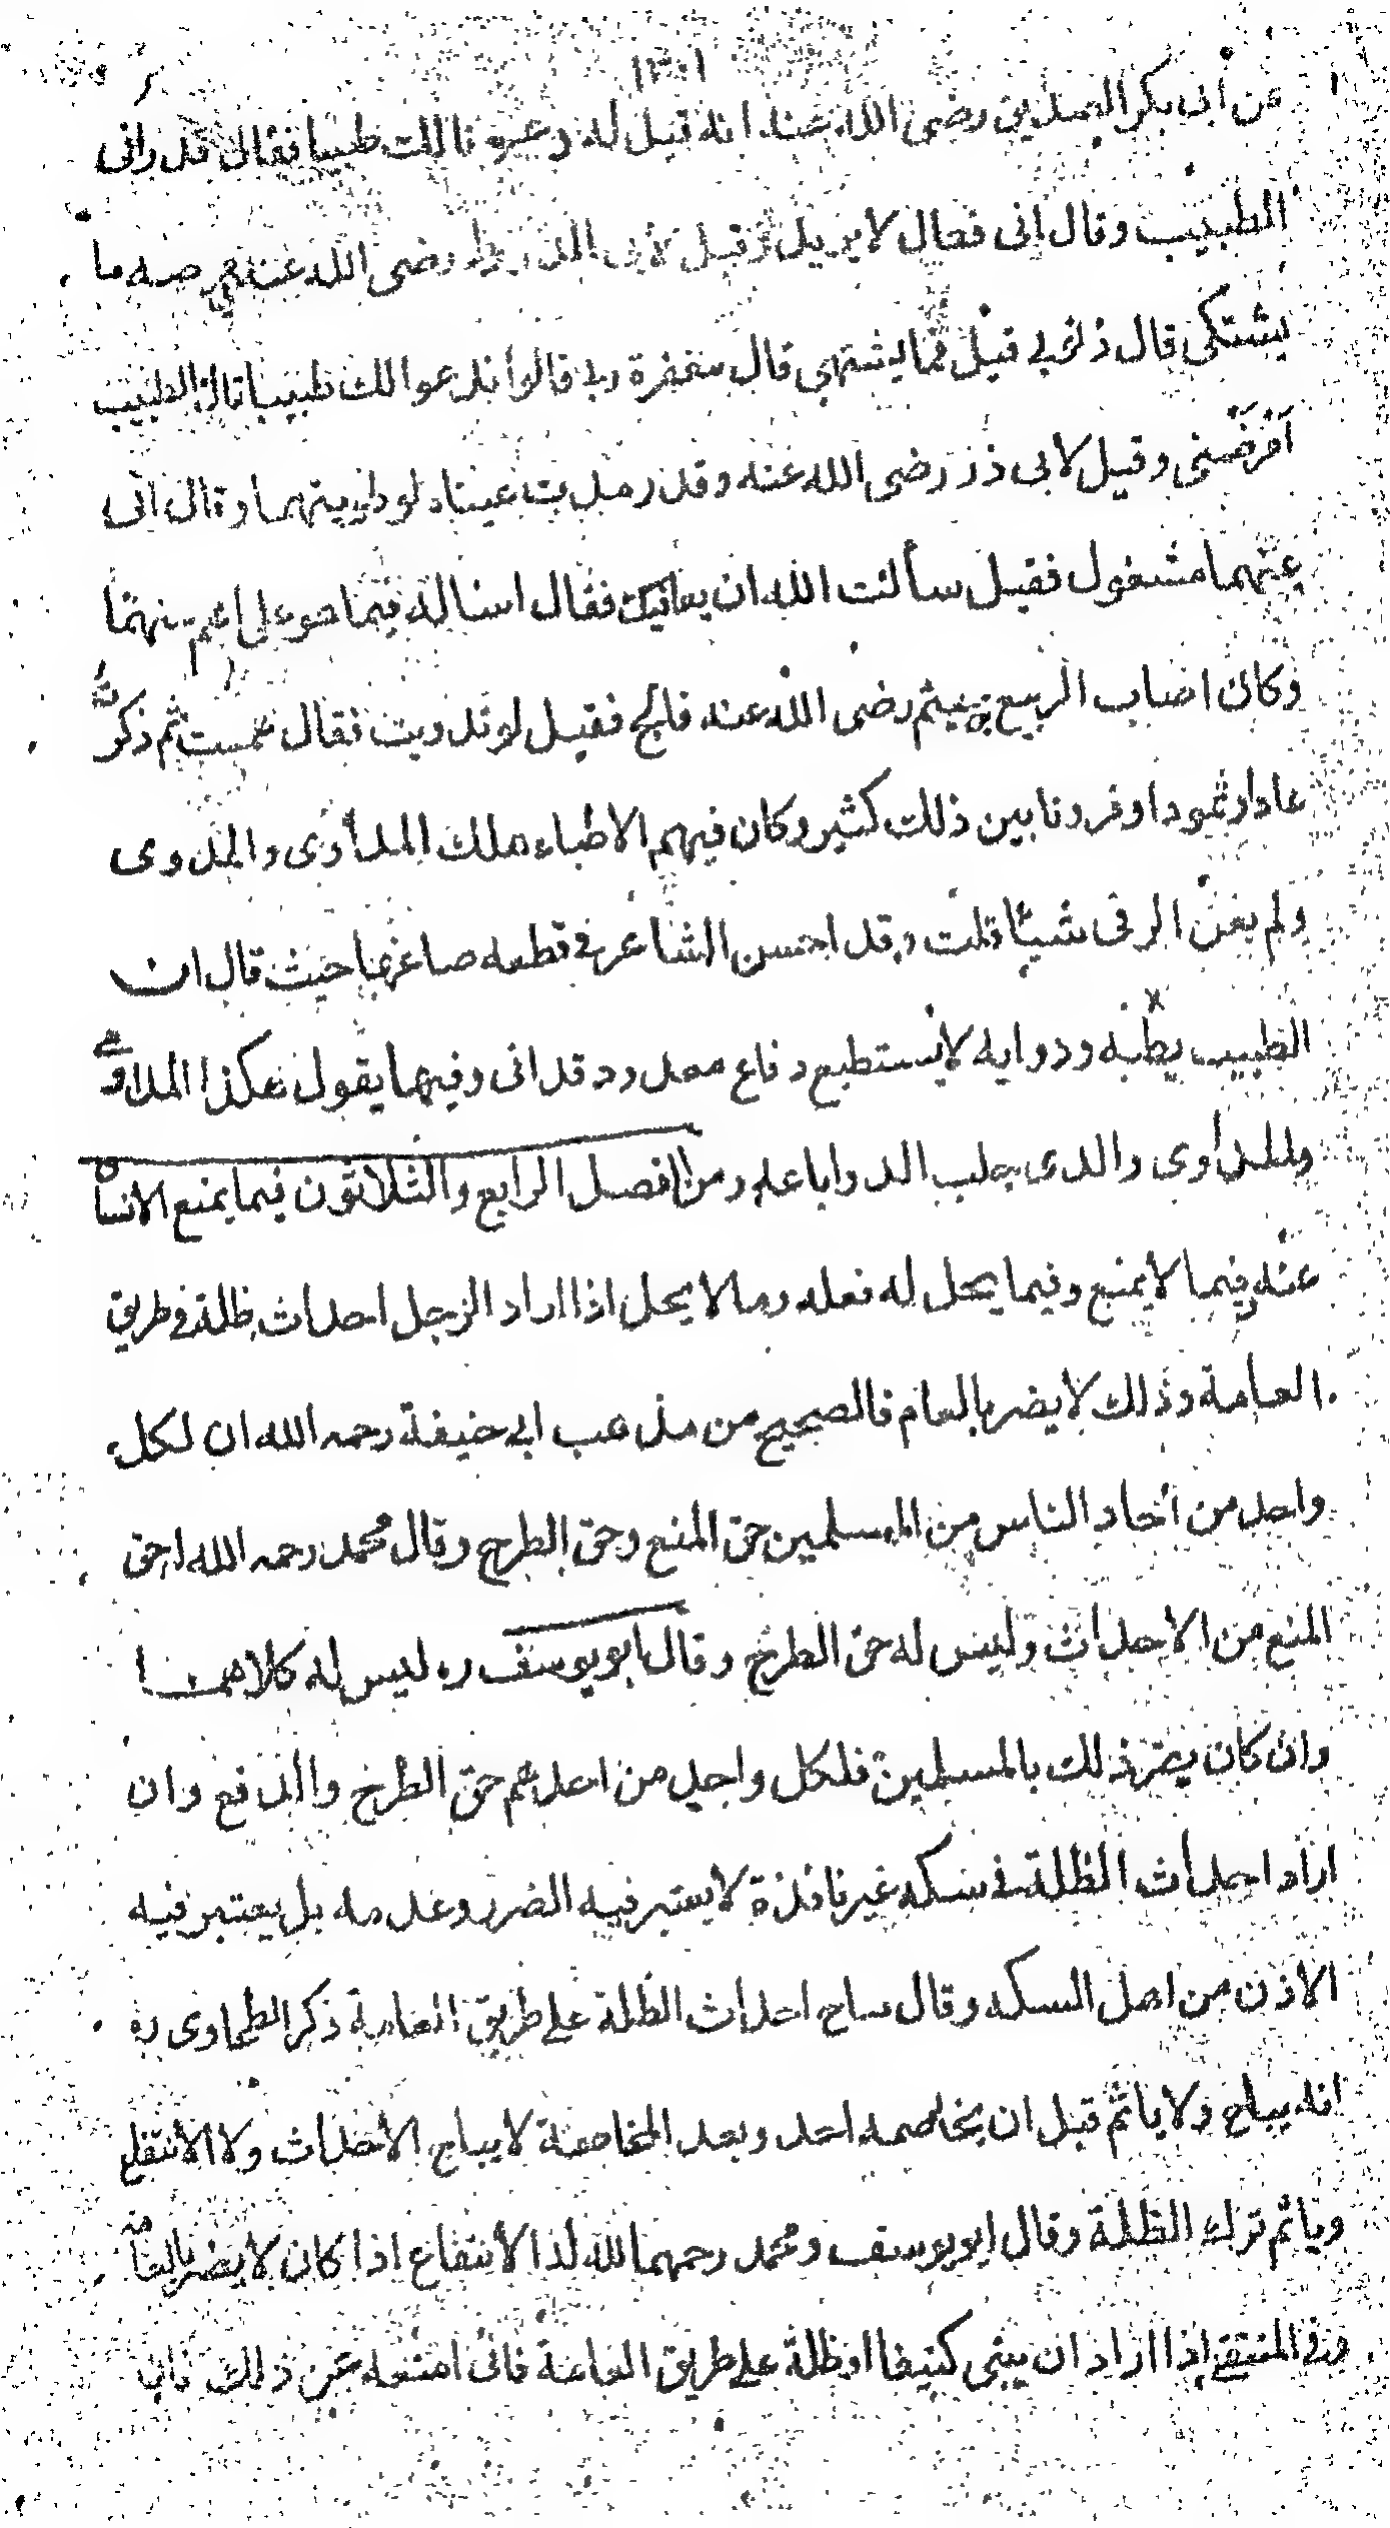 عن أبى بكر الصديق رضى الله عنه انه قيل له دعونا لك طبيبا فقال قد رانى
الطبيب وقال إنى فعال لا يريد وقيل لأبى الدرداء رضى الله عنه فى مرضه ما
يشتكى قال ذنوبى قيل فما يشتهى قال مغفرة ربى قالوا ندعوا لك طبيبا قال الطبيب
آمْرَضَنى وقيل لابى ذر رضى الله عنه وقد رمدت عيناه لو داويتهما وقال انى
عنهما مشغول فقيل سألت الله ان يعافيك فقال اسئاله فيما هو على اهم منهما
وكان اصاب الربيع بن خيثم رضى الله عنه فالج فقيل لو تداويت فقال هممت ثم ذكرت
عادا وثمودا وقرونا بين ذلك كثير وكان فيهم الاطباء هلك المداوى والمدوى
ولم يغن الرقى شيئا قلت وقد احسن الشاعر فى قطعه صاغها حيث قال ان
الطبيب بطبه ودوايه لا يستطيع دفاع محدود قد اتى وفيهما يقول هكذا المداوى
والمداوى والذى جلب الدوا باعه ومن الفصل الرابع والثلاثون فيما يمنع الانسان
عنه وفيما لا يمنع وفيما يحل له فعله وما لا يحل اذا اراد الرجل احداث ظلة فى طريق
العامة وذلك لا يضر بالعام فالصحيح من مذهب ابى حنيفة رحمه الله ان لكل
واحد من أحاد الناس من المسلمين حق المنع وحق الطرح وقال محمد رحمه الله له حق
المنع من الاحداث وليس له حق الطرح وقال ابو يوسف ره ليس له كلاهما
وان كان يضر ذلك بالمسلمين فلكل واحد من احدهم حق الطرح والدفع وان
اراد احداث الظلة فى سكه غير نافذة لا يعتبر فيه الضرر وعدمه بل يعتبر فيه
الاذن من اهل السكه وقال يباح احداث الظلة على طريق العامة ذكر الطحاوى ره
انه يباح ولا ياثم قبل ان يخاصمه احد وبعد المخاصمة لا يباح الأحداث ولا الانتفاع
وياثم ترك الظلة وقال ابو يوسف ومحمد رحمهما الله لذا الأنتفاع اذا كان لا يضر بالعامة
وفى المنتقى اذا اراد ان يبنى كنيفا او ظلة على طريق العامة فانى امنعه عن ذلك فان